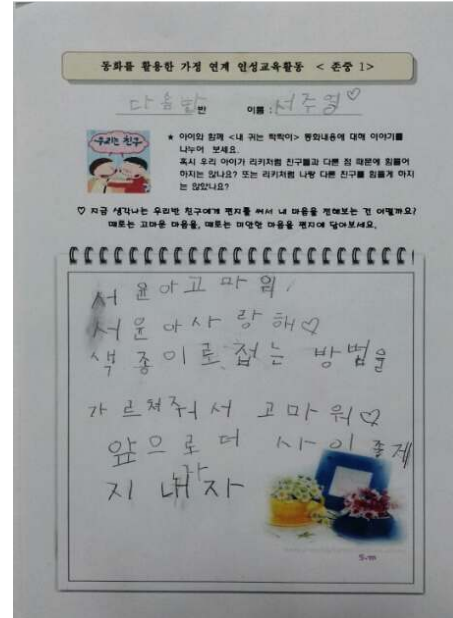 동화를 활용한 가정 연계 인성교육활동 < 존중 1>
다솜반 반 이름 : 서주영♡
우리는 친구
★ 아이와 함께 <내 귀는 짝짝이> 동화내용에 대해 이야기를
나누어 보세요.
혹시 우리 아이가 리키처럼 친구들과 다른 점 때문에 힘들어
하지는 않나요? 또는 리키처럼 나랑 다른 친구를 힘들게 하지
는 않았나요?
♡ 지금 생각나는 우리반 친구에게 편지를 써서 내 마음을 전해보는 건 어떨까요?
때로는 고마운 마음을, 때로는 미안한 마음을 편지에 담아보세요.
서윤아고마워!
서윤아사랑해♡
색종이로접는 방법을
가르쳐줘서 고마워♡
앞으로더 사이좋게
지내자